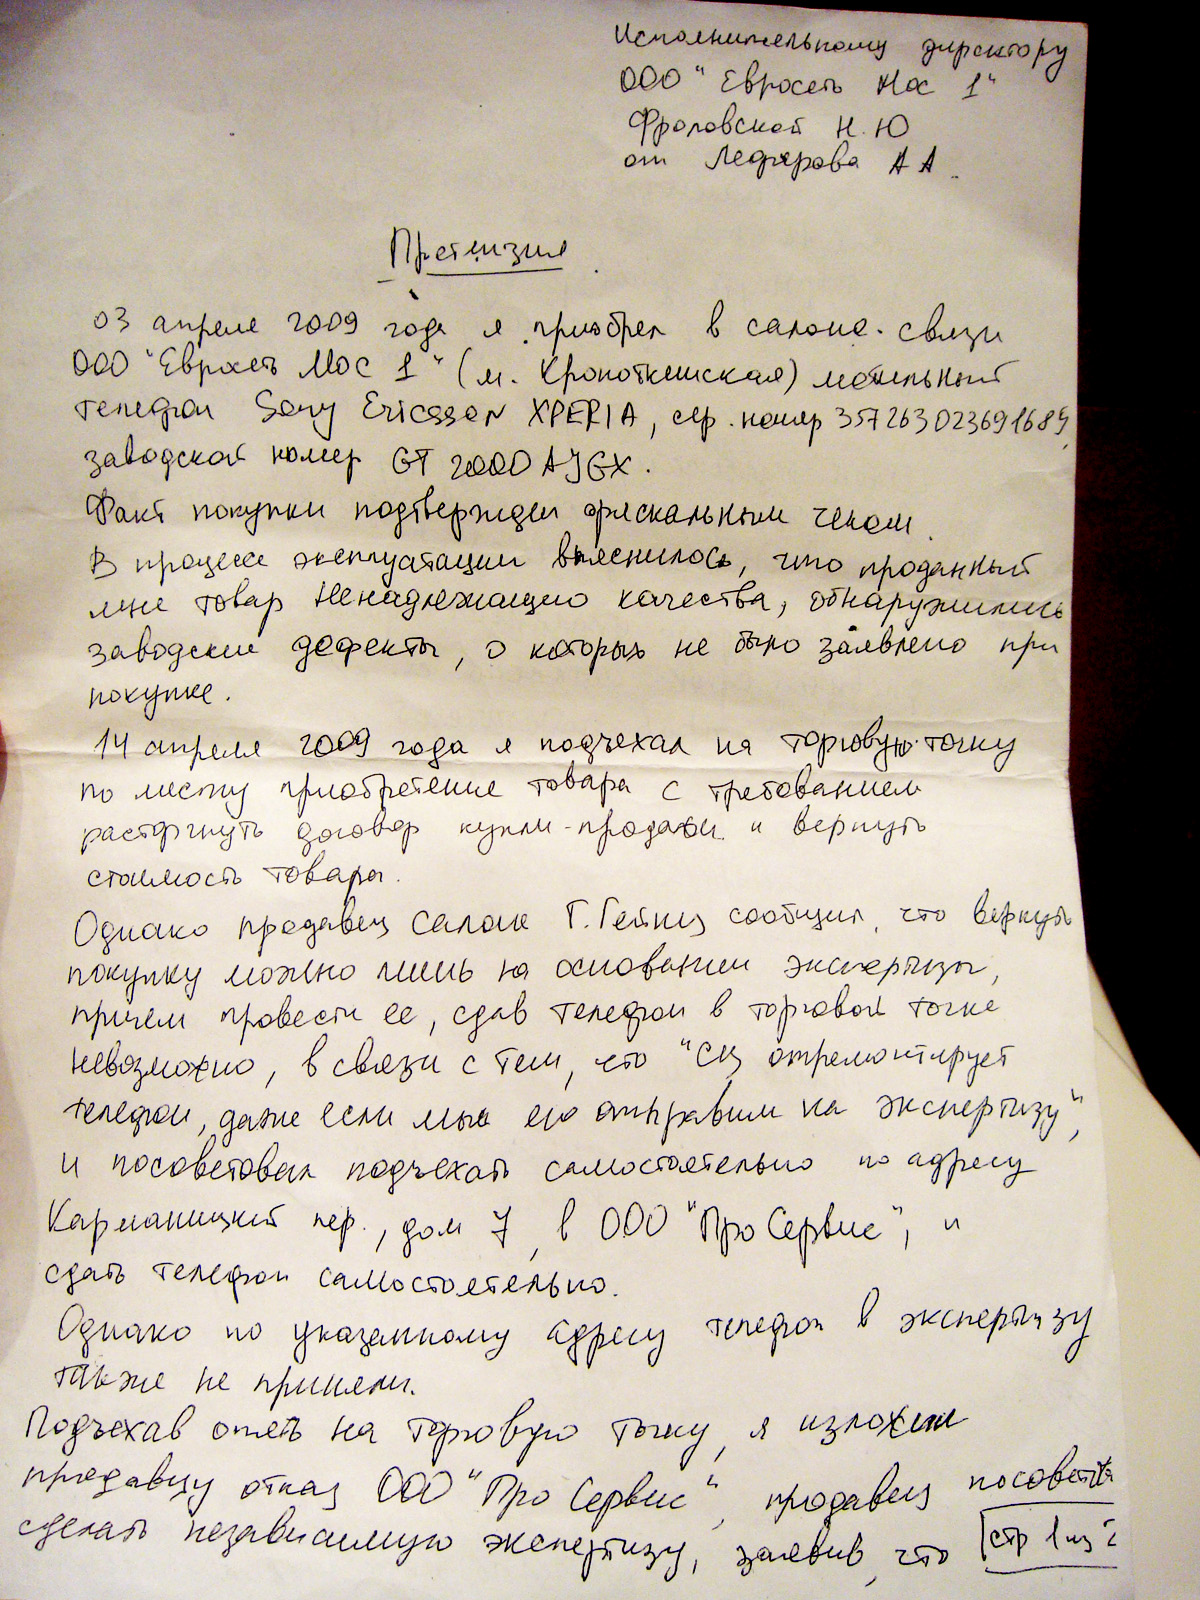 Исполнительному директору
ООО "Евросеть Мос 1"
Фроловской Н.Ю
от А А.
Претензия
03 апреля 2009 года я приобрел в салоне связи
ООО "Евросеть Мос 1" (м. Кропоткинская) мобильный
телефон Sony Ericsson XPERIA, сер. номер
заводской номер
Факт покупки подтвержден фискальным чеком.
В процессе эксплуатации выяснилось, что проданный
мне товар ненадлежащего качества, обнаружились
заводские дефекты, о которых не было заявлено при
покупке.
14 апреля 2009 года я подъехал на торговую точку
по месту приобретения товара с требованием
расторгнуть договор купли-продажи и вернуть
стоимость товара.
Однако продавец салона Г. сообщил, что вернуть
покупку можно лишь на основании экспертизы,
причем провести ее, сдав телефон в торговой точке
невозможно, в связи с тем, что "СЦ отремонтирует
телефон, даже если мы его отправим на экспертизу",
и посоветовал подъехать самостоятельно по адресу
Карманицкий пер., дом 7, в ООО "Про Сервис", и
сдать телефон самостоятельно.
Однако по указанному адресу телефон в экспертизу
также не приняли.
Подъехав опять на торговую точку, я изложил
продавцу отказ ООО "Про Сервис", продавец
сделать независимую экспертизу, заявив, что
стр 1 из 2